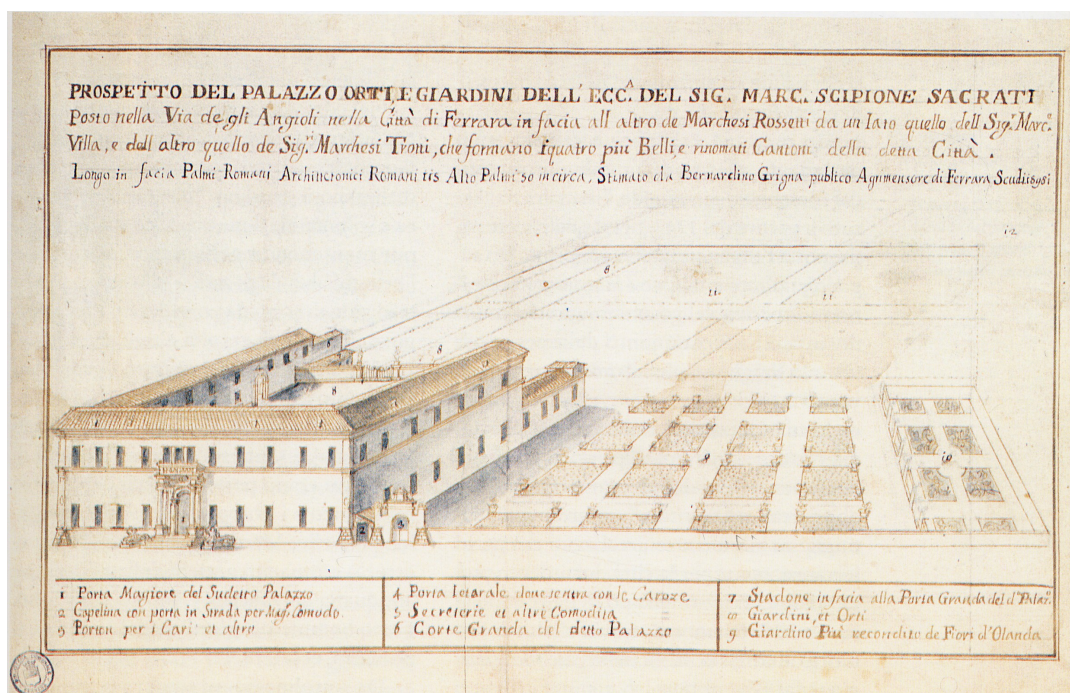 PROSPETTO DEL PALAZZO ORTI, E GIARDINI DELL' ECC.A DEL SIG. MARC. SCIPIONE SACRATI
Posto nella Via de gli Angioli nella Città di Ferrara in facia all altro de Marchesi Rossetti da un lato quello dell Sig.r Marc.e
Villa, e dall altro quello de Sig.ri Marchesi Troni, che formano i quatro più Belli, e rinomati Cantoni della detta Città.
Longo in facia Palmi Romani Architettonici Romani Alto Palmi in circa, Stimato da Bernardino Grigna publico Agrimensore di Ferrara Scudi
12
8
11
11
8
6
9
10
2
4
1 Porta Magiore del Sudetto Palazzo
2 Capelina con porta in Strada per Mag.r Comodo.
3 Porton per i Cari et altro
4 Porta latarale dove sentra con le Caroze
5 Secreterie et altri Comodita
6 Corte Granda del detto Palazzo
7 Stadone in facia alla Porta Granda del d.o Palaz.o
8 Giardini, et Orti
9 Giardino Più recondito de Fiori d'Olanda